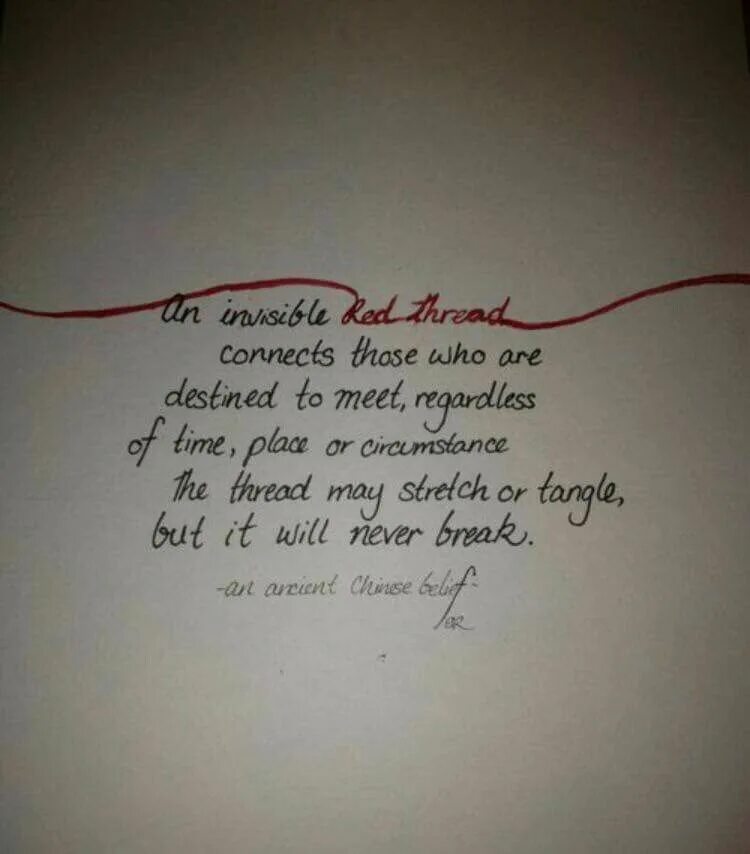 An invisible Red thread
connects those who are
destined to meet, regardless
of time, place or circumstance
The thread may stretch or tangle,
but it will never break.
-an ancient Chinese belief-